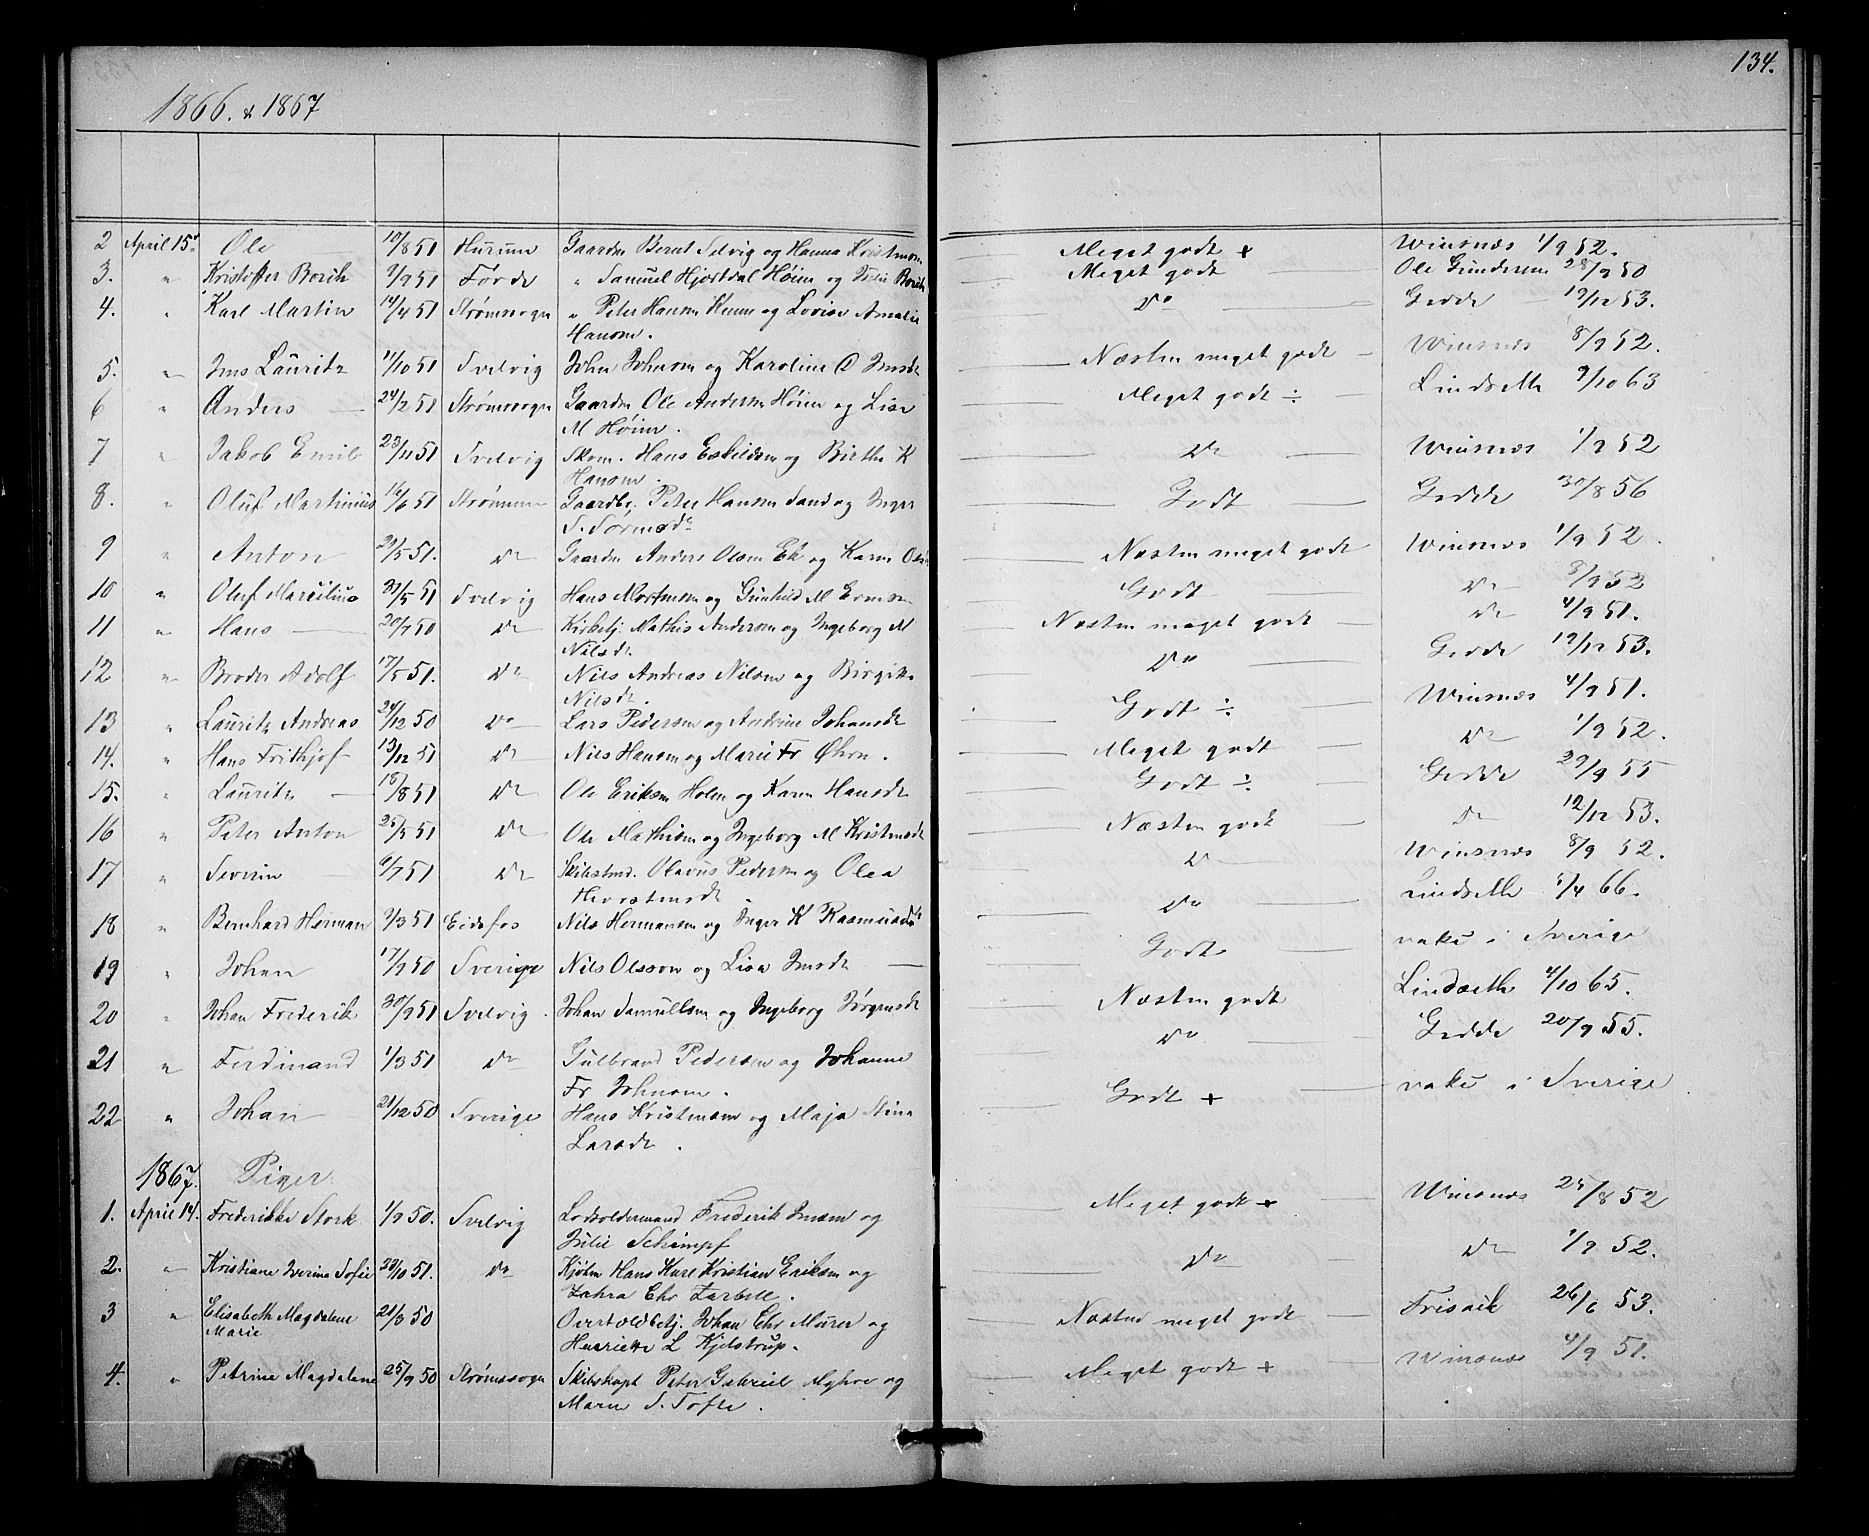 134.
1866. & 1867
2 April 15d Ole 10/8 51 Hurum Gaardm Bernt Selvig og Hanna Kristensen Meget godt + Winsnæs 1/9 52.
3. " Kristoffer Borch 9/9 51 Førde " Samuel Hjortdal Høien og Julie Borch Meget godt Ole Gundersen 28/9 50
4. " Karl Martin 14/4 51 Strømsogn " Peter Hansen og Lovise Amalie Do Gedde 12/12 53.
Hansen.
5. " Jens Lauritz 11/10 51 Svelvig John Johnsen og Karoline O Jensdr Næsten meget godt Winsnæs 8/9 52.
6 " Anders 24/2 51 Strømssogn Gaardm Ole Andersen Høien og Lise Meget godt ÷ Lindseth 9/10 63
M Høien.
7 " Jakob Emil 23/11 51 Svelvig Skom. Hans Eskildsen og Birthe K Do Winsnæs 1/9 52
Hansen.
8. " Oluf Martinius 16/6 51 Strømmen Gaardbr. Peter Hansen Sand og Inger Godt Gedde 30/8 56
9 " Anton 21/5 51. Do Gaardm Anders Olsen Ek og Karen Næsten meget godt Winsnæs 1/9 52.
10 " Oluf Marcilius 30/5 51 Svelvig Hans Mortensen og Gunhild M Godt Do 8/9 52
11 " Hans 20/7 50 Do Kirketj. Mathis Andersen og Ingeborg M Næsten meget godt Do 4/9 51.
Nilsdr.
12 " Broder Adolf 17/5 51. Do Nils Andreas Nilsen og Birgitte Do Gedde 12/12 53.
Nilsdr.
13 " Lauritz Andreas 24/12 50 Do Lars Pedersen og Andrine Johansdr Godt ÷ Winsnæs 4/9 51.
14. " Hans Frithjof 13/12 51 Do Nils Hansen og Marie Fr Øhrn. Meget godt Do 1/9 52.
15. " Lauritz 18/8 51 Do Ole Eriksen Holm og Karen Hansdr Godt ÷ Gedde 29/9 55
16 " Peter Anton 25/5 51 Do Ole Mathisen og Ingeborg M Kristensdr Næsten godt Do 12/12 53.
17 " Severin 6/7 51 Do Skibstmd. Olavus Pedersen og Olea Do Winsnæs 8/9 52.
18 " Bernhard Herman 9/3 51 Eidsfos Nils Hermansen og Inger K Rasmusdr Do Lindseth 5/4 66.
19 " Johan 17/9 50 Sverige Nils Olsson og Lisa Jensdr Godt vake i Sverige
20 " Johan Frederik 30/9 51 Svelvig. Johan Samuelsen og Ingeborg Jørgensdr Næsten godt Lindseth 4/10 65.
21 " Ferdinand 1/3 51 Do Gulbrand Pedersen og Johanne Do Gedde 20/9 55.
Fr Johnsen.
22 " Johan 21/12 50 Sverige Hans Kristensen og Maja Stina Godt + vake i Sverige
Larsdr.
1867. Piger
1. April 14. Frederikke Stork 1/9 50. Svelvig Lodsoldermand Frederik Jensen og Meget godt + Winsnæs 25/8 52
Julie Schimpf
2. " Kristiane Iverine Sofie 29/10 51. Do Kjøbm Hans Karl Kristian Eriksen og Do Do 1/9 52.
Zahra Chr Zarbell.
3 " Elisabeth Magdalene 21/8 50 Overtoldbetj. Johan Chr Mürer og Næsten meget godt Frisak 26/6 53.
Marie Henriette L Kjelstrup.
4. " Petrine Magdalene 25/9 50 Strømssogn Skibskapt Peter Gabriel Myhre og Meget godt + Winsnæs 4/9 51.
Maren S. Tofte.